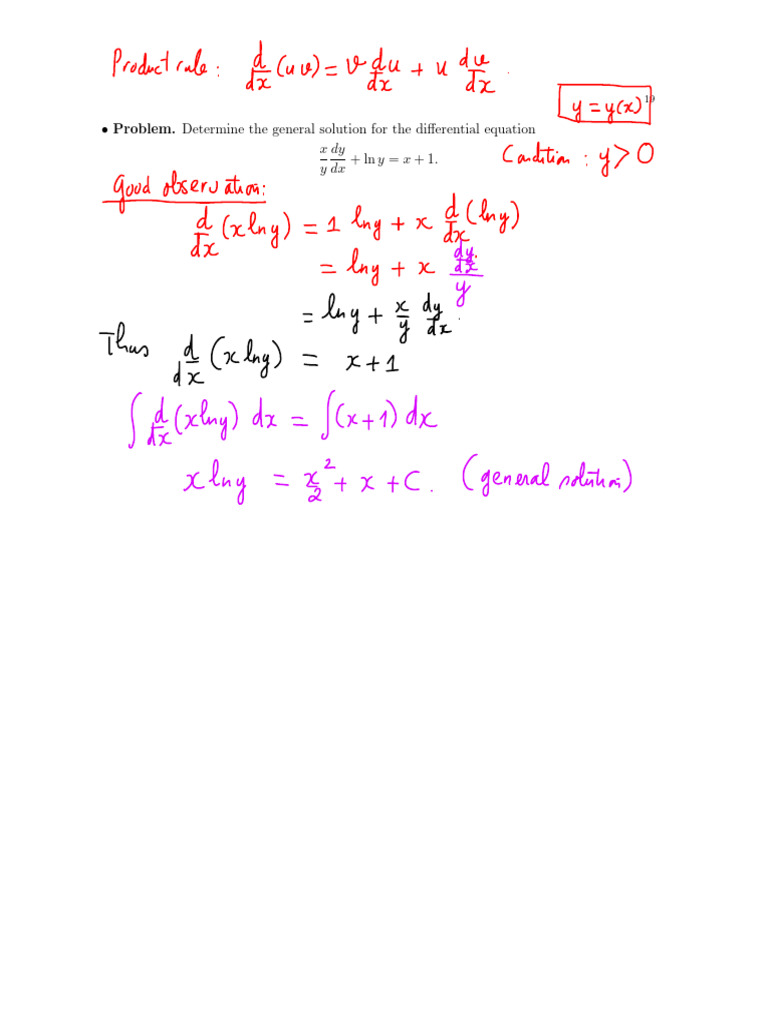 Product rule: d/dx (uv) = v du/dx + u dv/dx.
19
y = y(x)
• Problem. Determine the general solution for the differential equation
x/y dy/dx + ln y = x + 1.
Condition: y > 0
Good observation:
d/dx (x ln y) = 1 ln y + x d/dx (ln y)
= ln y + x (dy/dx)/y
= ln y + x/y dy/dx.
Thus d/dx (x ln y) = x + 1
∫ d/dx (x ln y) dx = ∫ (x + 1) dx
x ln y = x²/2 + x + C. (general solution)